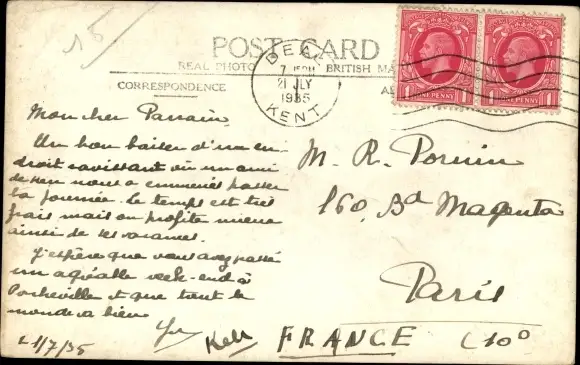 15
POST CARD
REAL PHOTO
BRITISH MA
CORRESPONDENCE
DEAL
7
21 JLY
1935
KENT
ONE PENNY
ONE PENNY
Mon cher Parrain,
Un bon baiser d'un en-
droit ravissant où un ami
de nous a emmenés passer
la journée. Le temps est très
frais mais on profite mieux
ainsi de ses vacances.
J'espère que vous avez passé
un agréable week-end à
Porcheville et que tout le
monde va bien.
21/7/35
M. R. Pornin
160, Bd Magenta
Paris
FRANCE (10°